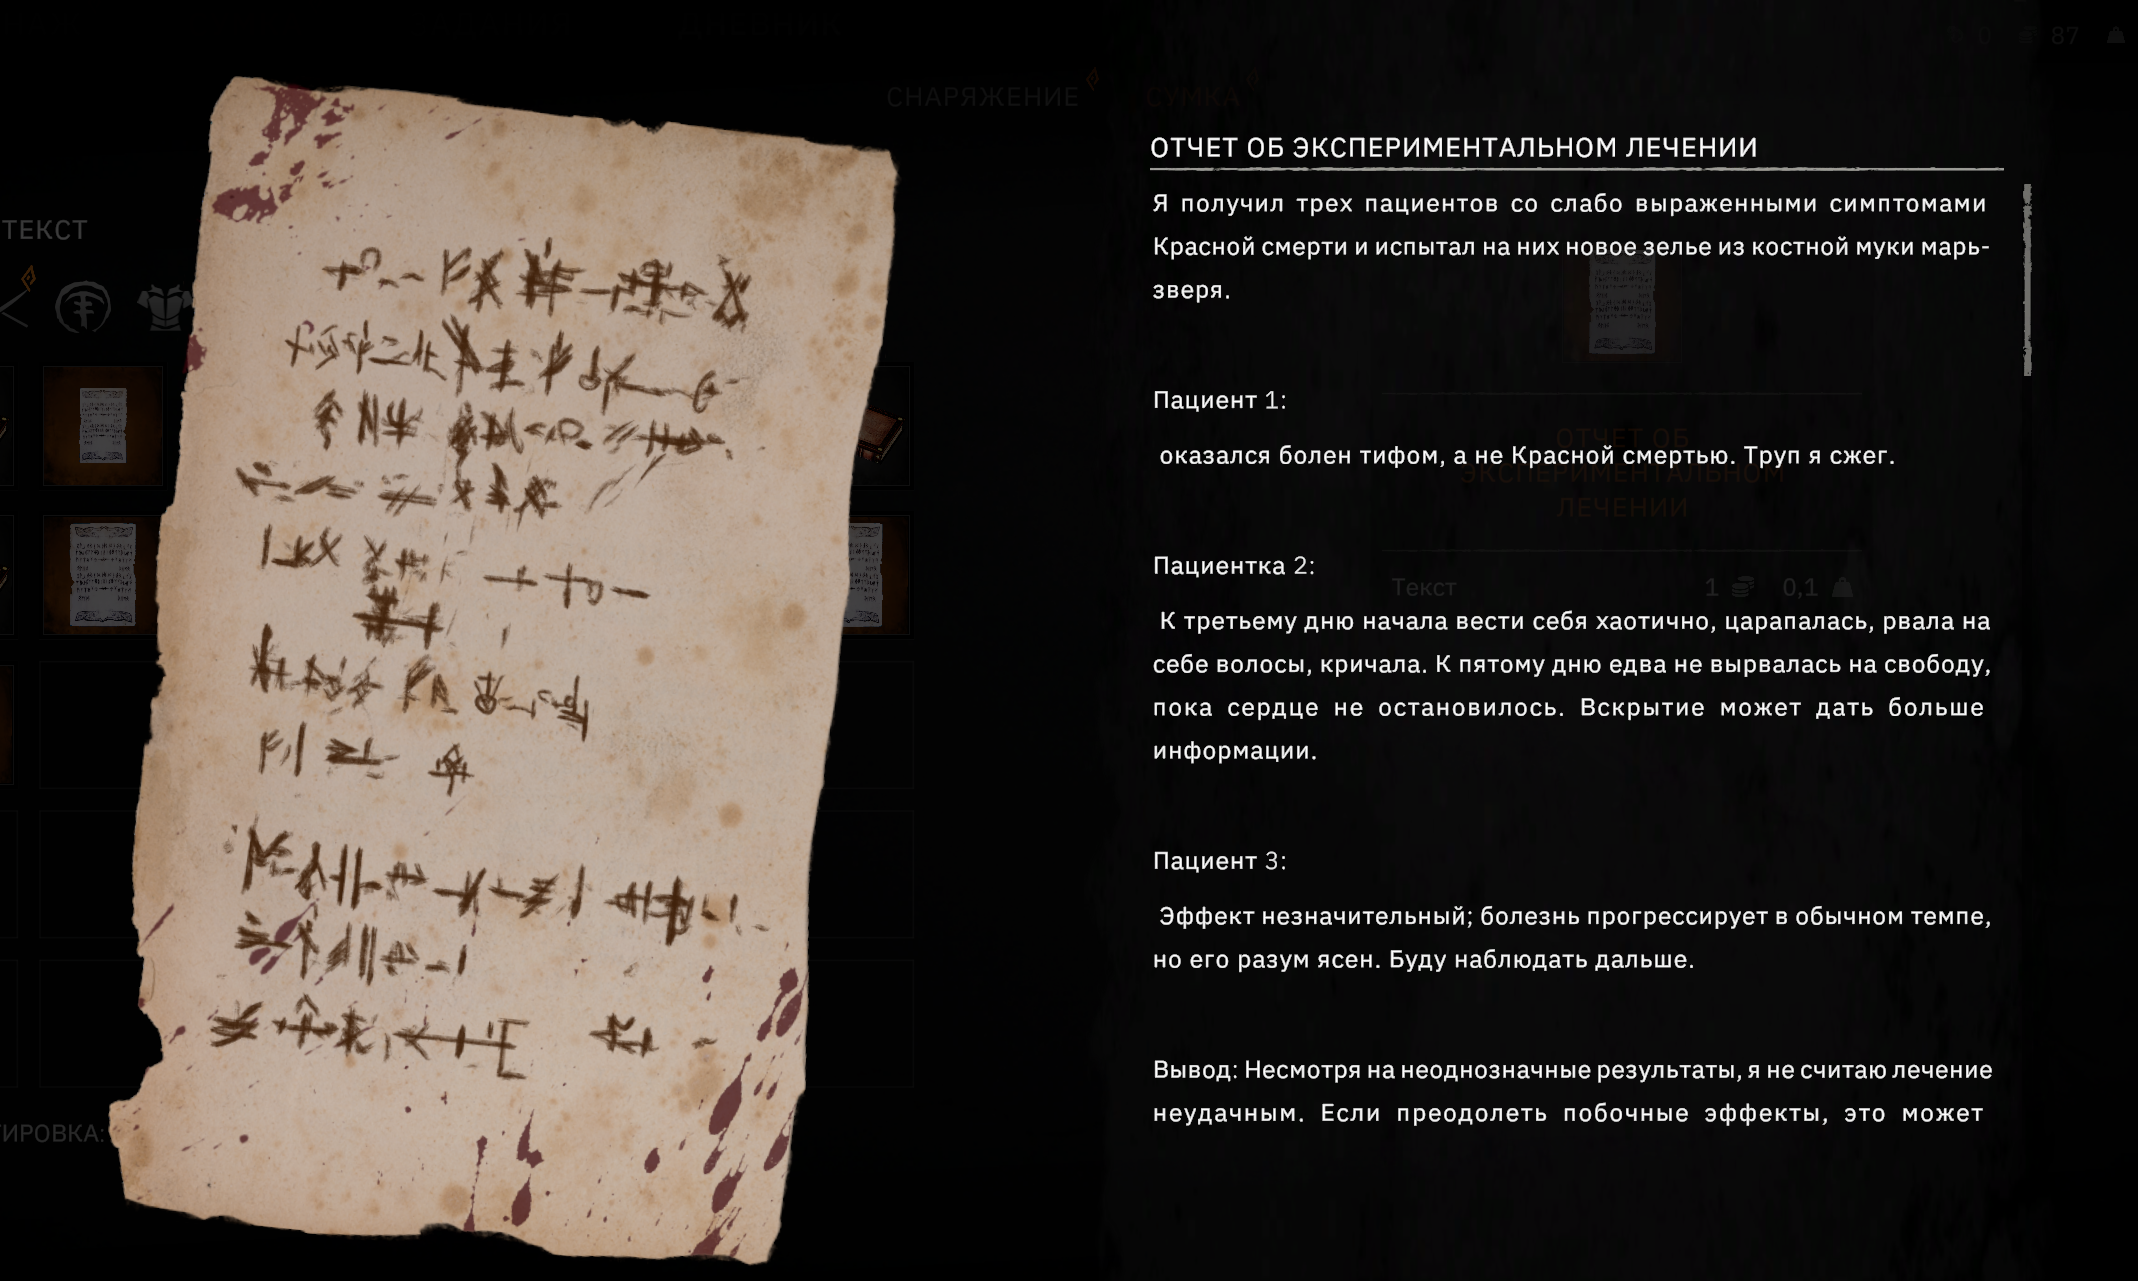 ДНЕВНИК
0 87
СНАРЯЖЕНИЕ СУМКА
ТЕКСТ
ОТЧЕТ ОБ ЭКСПЕРИМЕНТАЛЬНОМ ЛЕЧЕНИИ
Я получил трех пациентов со слабо выраженными симптомами
Красной смерти и испытал на них новое зелье из костной муки марь-
зверя.
Пациент 1:
оказался болен тифом, а не Красной смертью. Труп я сжег.
Пациентка 2:
К третьему дню начала вести себя хаотично, царапалась, рвала на
себе волосы, кричала. К пятому дню едва не вырвалась на свободу,
пока сердце не остановилось. Вскрытие может дать больше
информации.
Пациент 3:
Эффект незначительный; болезнь прогрессирует в обычном темпе,
но его разум ясен. Буду наблюдать дальше.
Вывод: Несмотря на неоднозначные результаты, я не считаю лечение
неудачным. Если преодолеть побочные эффекты, это может
ОТЧЕТ ОБ
ЭКСПЕРИМЕНТАЛЬНОМ
ЛЕЧЕНИИ
Текст 1 0,1
ИРОВКА: